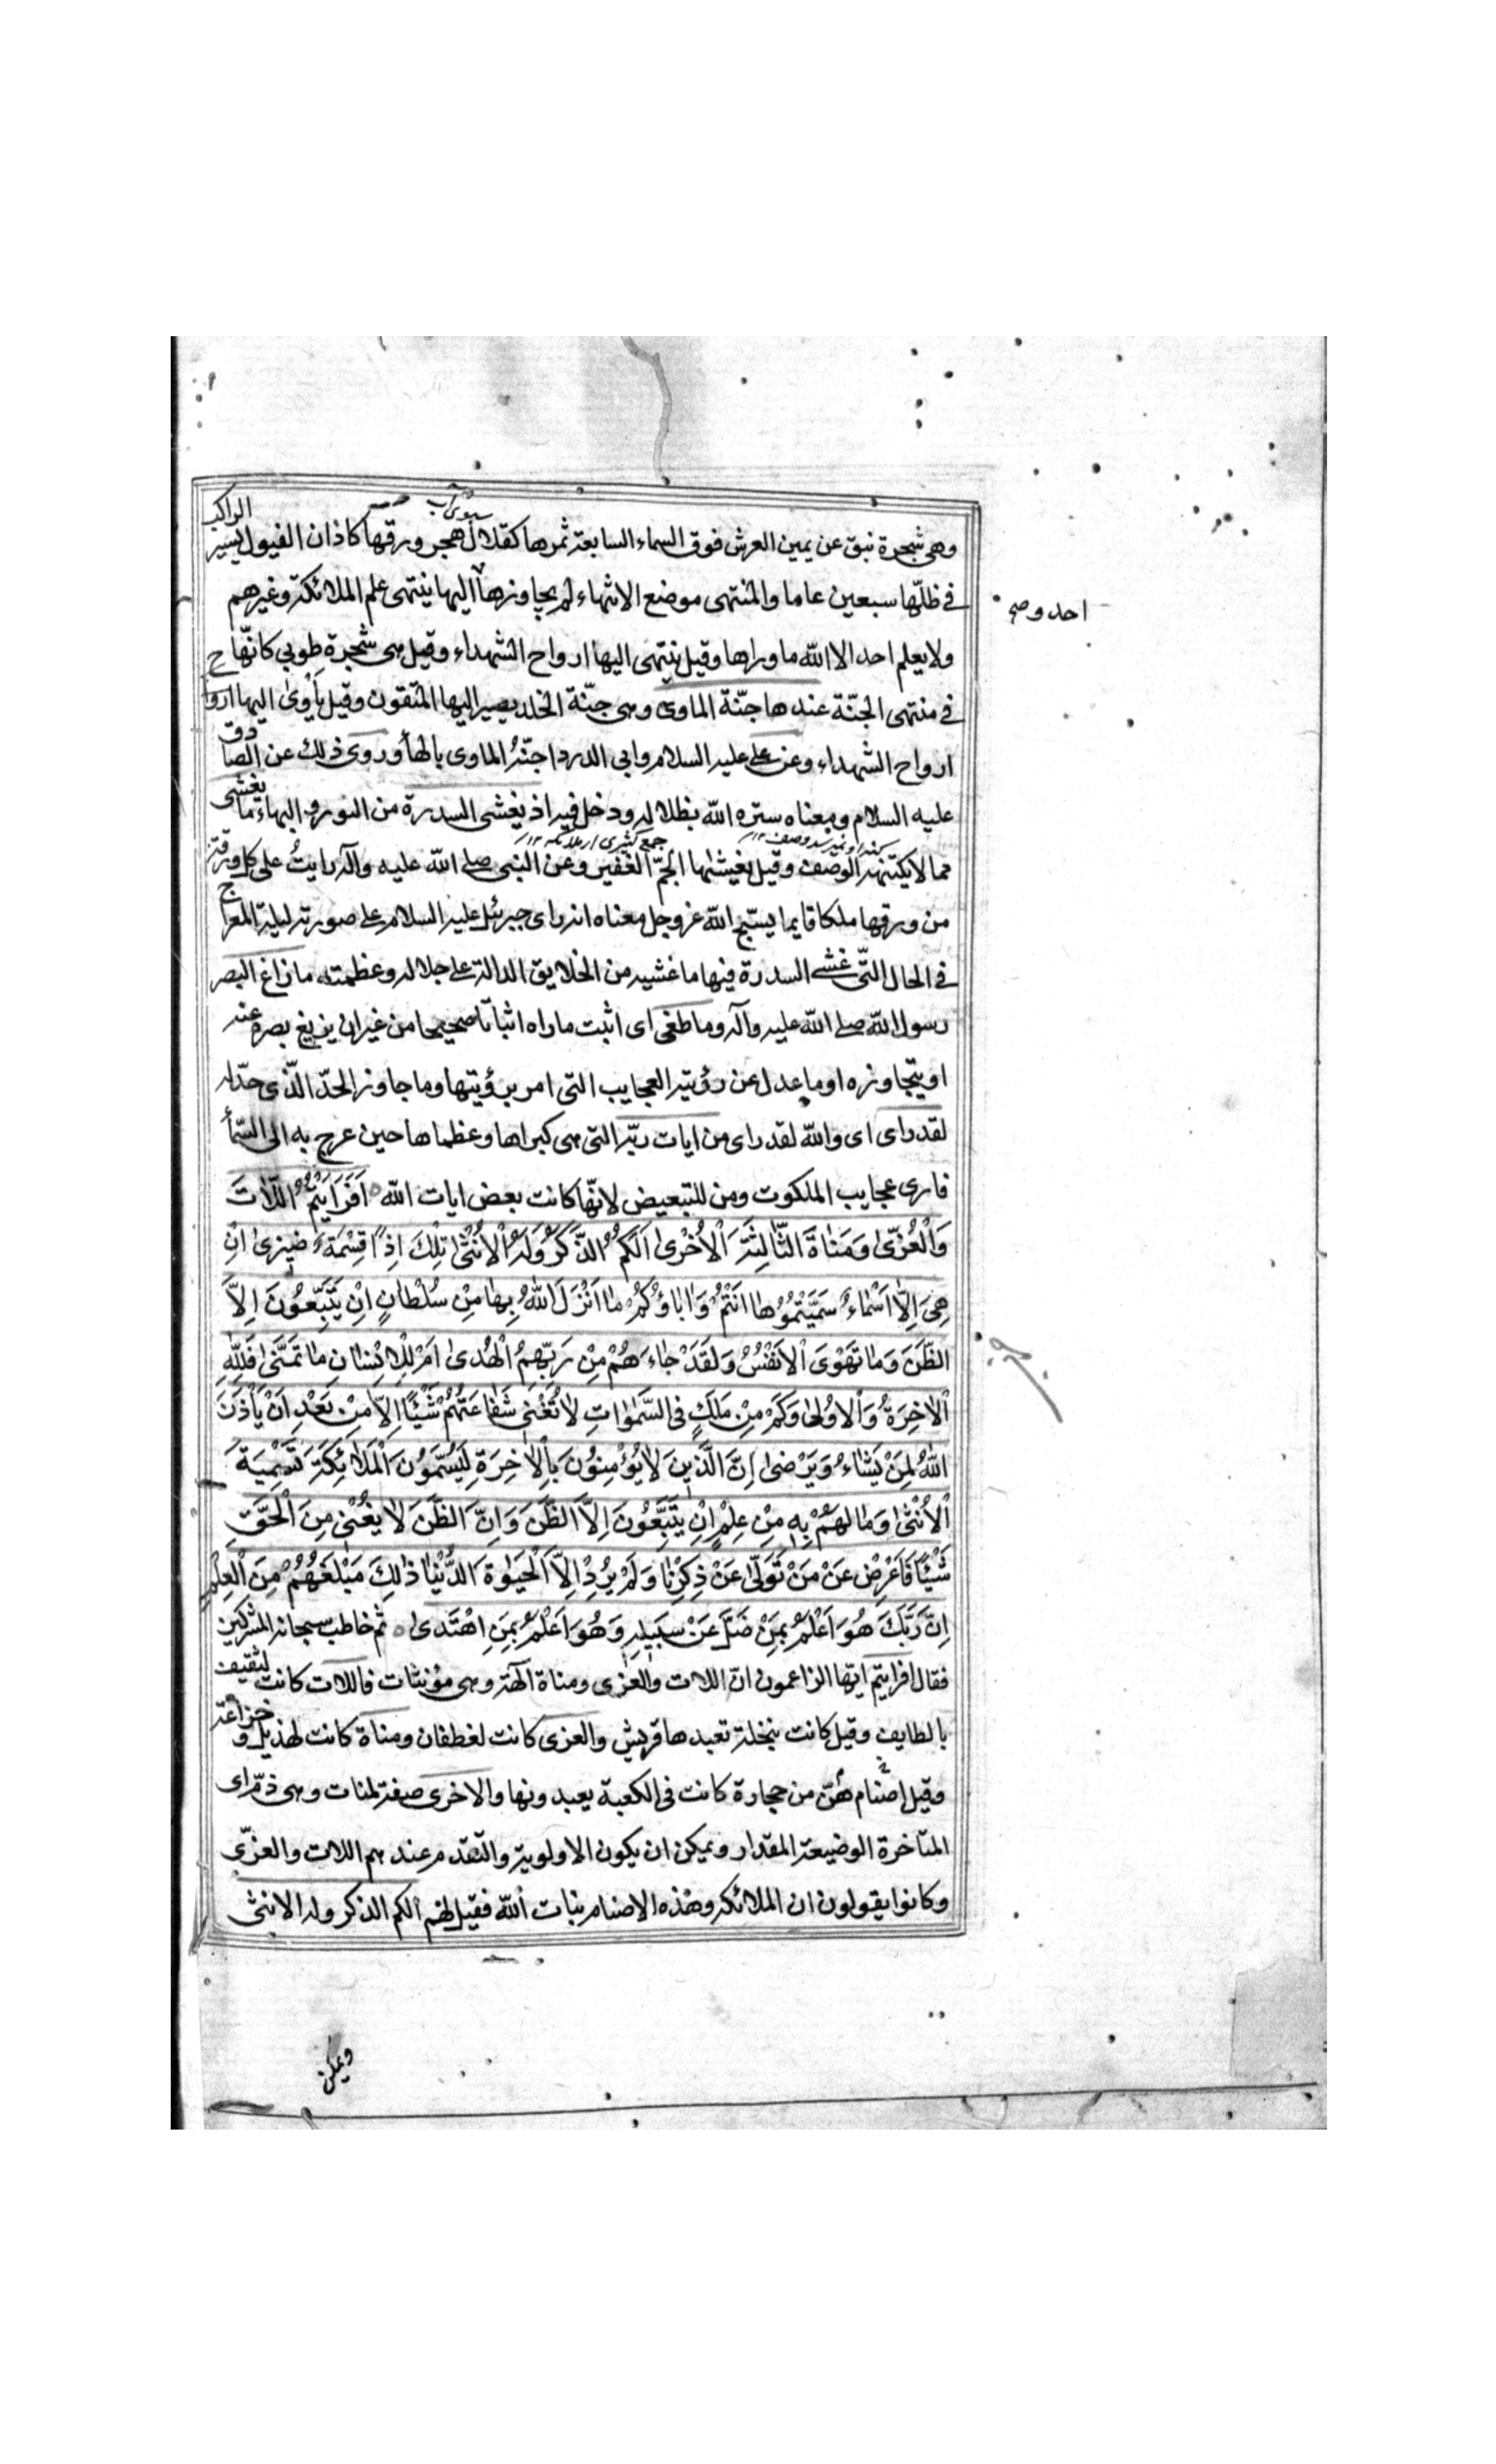 سبوی آب
وهی شجرة نبق عن یمین العرش فوق السماء السابعة ثمرها کقلال هجر و ورقها کاذان الفیول یسیر الراکب
فی ظلّها سبعین عاما والمنتهی موضع الانتهاء لم یجاوزها الیها ینتهی علم الملائکة وغیرهم
احد وصح
ولا یعلم احد الا الله ما وراها وقیل ینتهی الیها ارواح الشهداء وقیل هی شجرة طوبی کانّها ح
فی منتهی الجنّة عندها جنّة الماوی وهی جنّة الخلد یصیر الیها المتقون وقیل یأوی الیها اروا
ارواح الشهداء وعن علی علیه السلام وابی الدردا جنّهُ الماوی بالهأ وروی ذلك عن الصادق
علیه السلام ومعناه ستره الله بظلاله ودخل فیه اذ یغشی السدرة من النور والبهاء ما یغشی
جمع کثیری از ملائکه ۱۲
مما لا یکتنهه الوصف وقیل یغیشٰها الجمّ الغفیر وعن النبی صلی الله علیه وآله رایتُ علی کل ورقة
من ورقها ملکا قایما یسبّح الله عز وجل معناه انه رای جبرئیل علیه السلام علی صورته لیلة المعراج
فی الحال التّی غشی السدرة فیها ما غشیه من الخلایق الدالة علی جلاله وعظمته ما زاغ البصر
رسول الله صلی الله علیه وآله وما طغی ای اثبت ما راه اثباتًا صحیحا من غیر ان یزیغ بصره عنه
او یتجاوزه او ما عدل عن رؤیة العجایب التی امر برؤیتها وما جاوز الحدّ الّذی حدّ له
لقد رای ای والله لقد رای من ایات ربّه التی هی کبراها وعظماها حین عرج به الی السّمأ
فاری عجایب الملکوت ومن للتبعیض لانّها کانت بعض ایات الله اَفَرَاَیْتُمُ اللّاتَ
وَالْعُزّی وَمَنٰاةَ الثّالِثَةَ اْلاُخْریٰ اَلَکُمُ الذَّکَرُ وَلَهُ اْلاُنْثٰی تِلْكَ اِذًا قِسْمَةٌ ضیزیٰ اِنْ
هِیَ اِلّا اَسْمٰاءٌ سَمَّیْتُمُوُهٰا اَنْتُمْ وَاٰبٰاؤُکُمْ مٰا اَنْزَلَ اللهُ بِهٰا مِنْ سُلْطٰانٍ اِنْ یَتَّبِعُونَ اِلاَّ
الظَّنَ وَمٰا تَهْوَی اْلاَنْفُسُ وَلَقَدْ جٰاءَهُمْ مِنْ رَبِّهِمُ الْهُدیٰ اَمْ لِلْاِنْسٰانِ مٰا تَمَنّیٰ فَلِلّٰهِ
اْلاٰخِرَةُ وَاْلاُولیٰ وَکَمْ مِنْ مَلَكٍ فی السَّمٰوٰاتِ لٰا تُغْنی شَفٰاعَتُهُمْ شَیْئًا اِلّا مِنْ بَعْدِ اَنْ یَأْذَنَ
اللهُ لِمَنْ یَشٰاءُ وَیَرْضیٰ اِنَّ الَّذینَ لٰا یُؤْمِنُونَ بِاْلاٰخِرَةِ لَیُسَمُّونَ الْمَلٰائِکَةَ تَسْمِیَةَ
اْلاُنْثٰی وَمٰا لَهُمْ بِهِ مِنْ عِلْمٍ اِنْ یَتَّبِعُونَ اِلاَّ الظَّنَ وَاِنَّ الظَّنَ لٰا یُغْنی مِنَ الْحَقِّ
شَیْئًا فَاَعْرِضْ عَنْ مَنْ تَوَلّیٰ عَنْ ذِکْرِنٰا وَلَمْ یُرِدْ اِلاَّ الْحَیٰوةَ الدُّنْیٰا ذٰلِكَ مَبْلَغُهُمْ مِنَ الْعِلْمِ
اِنَّ رَبَّكَ هُوَ اَعْلَمُ بِمَنْ ضَلَّ عَنْ سَبیلِهِ وَهُوَ اَعْلَمُ بِمَنِ اهْتَدیٰ ثم خاطب سبحانه المشرکین
فقال افرایتم ایّها الزاعمون انّ اللات والعزی ومناة آلهة وهی مؤنثات فاللات کانت لثقیف
بالطایف وقیل کانت بنخلة تعبدها قریش والعزی کانت لغطفان ومناة کانت لهذیل وخزاعة
وقیل اصنام هنّ من حجارة کانت فی الکعبة یعبدونها والاخری صفة لمنات وهی ذمّ ای
المتاخرة الوضیعة المقدار ویمکن ان یکون الاولویة والتقدم عندهم اللات والعزّی
وکانوا یقولون ان الملائکه وهذه الاصنام بنات الله فقیل لهم الکم الذکر وله الانثی
ویمکن